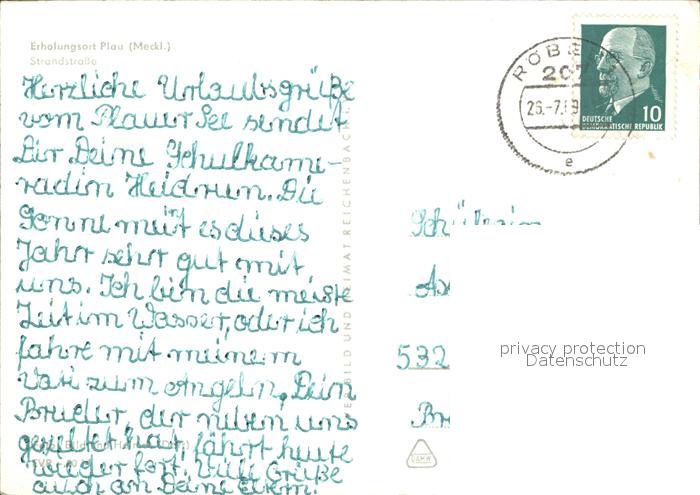 Erholungsort Plau (Meckl.)
Strandstraße
Herzliche Urlaubsgrüße
vom Plauer See sendet
Dir Deine Schulkame-
radin Heidrun. Die
Sonne meint es dieses
Jahr sehr gut mit
uns. Ich bin die meiste
Zeit im Wasser, oder ich
fahre mit meinem
Vati zum Angeln. Dein
Bruder, der neben uns
gezeltet hat, fährt heute
wieder fort. Viele Grüße
auch an Deine Eltern.
BILD UND HEIMAT REICHENBACH
RÖBEL
207
26.-7.69
e
10
DEUTSCHE
DEMOKRATISCHE REPUBLIK
Schülerin
532
privacy protection
Datenschutz